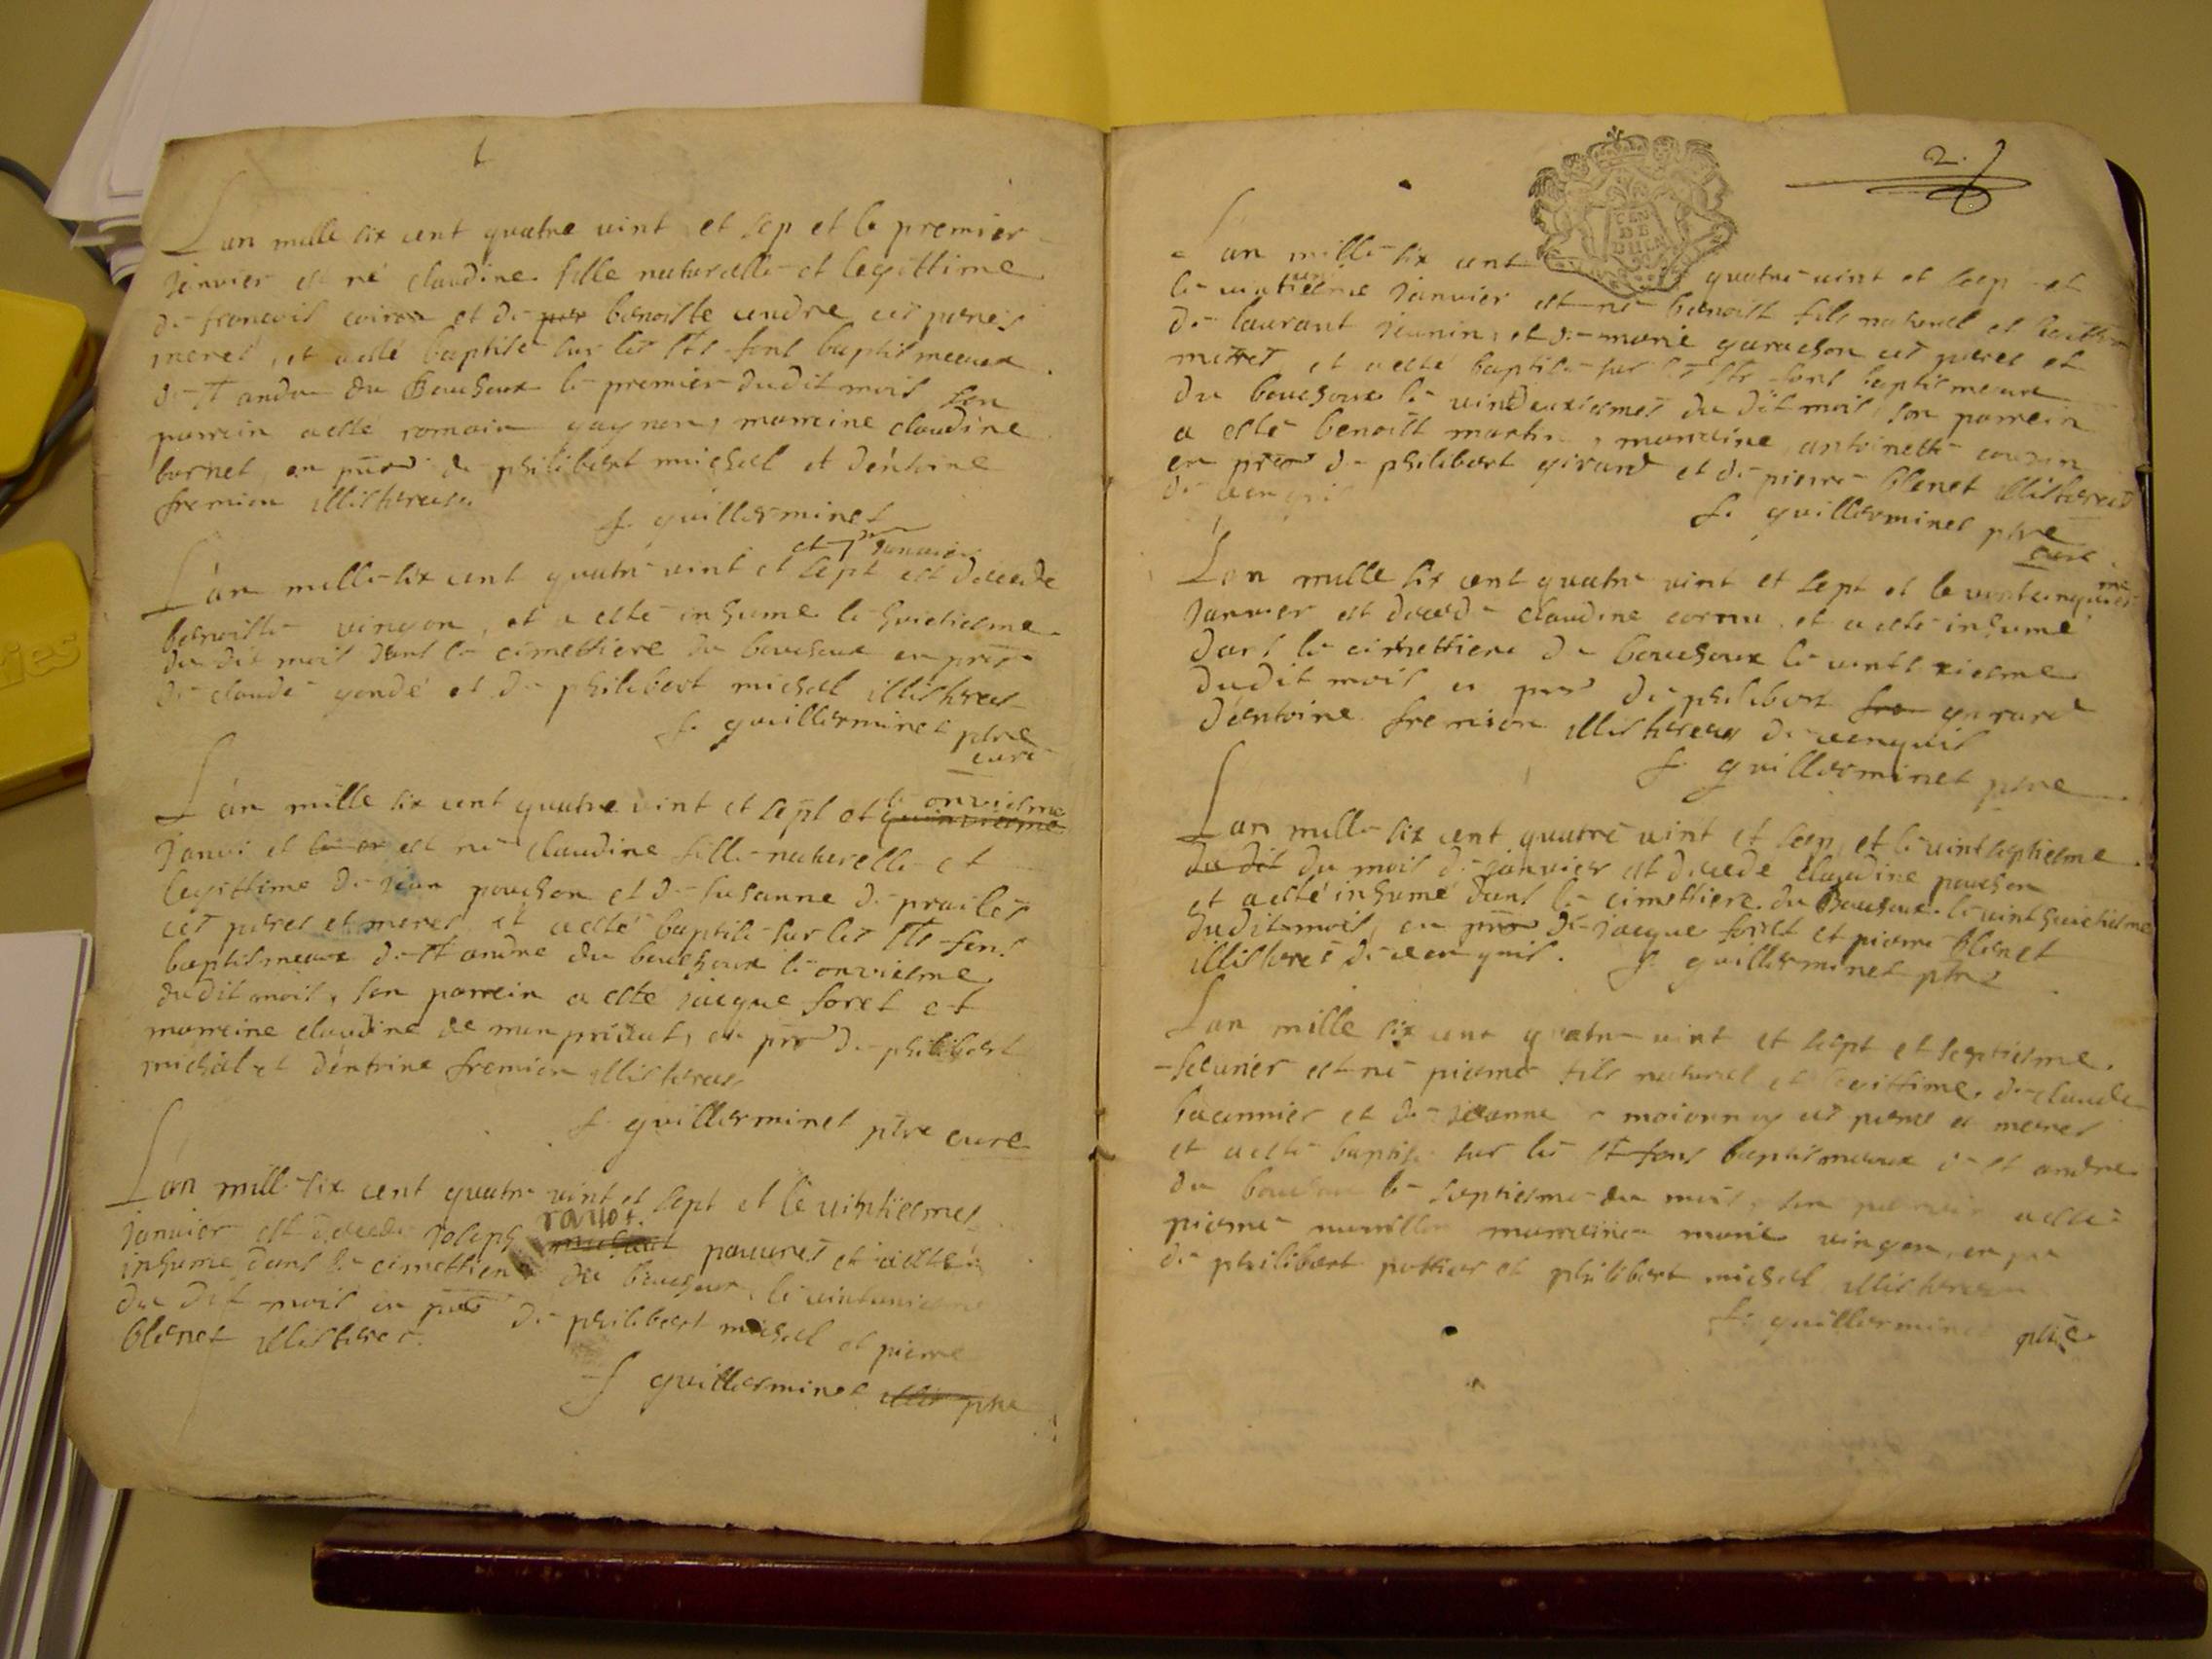 Lan mille six cent quatre vint et sep et le premier
Janvier est né claudine fille naturelle et legittime
de francois et de benoiste cendre ces peres
meres, et aesté baptisé sur les sts fons baptismeaux
de st andre du Bouchoux le premier dudit mois son
parrein aesté romain gagnon, marreine claudine
bornet, en pnce de philibert michael et dentoine
fremion illisterees
f. guillerminet
et janvier
Lan mille six cent quatre vint et sept est decede
benoiste vingon, et a esté inhume le huictiesme
du dit mois dans le cimettiere du bouchoux en pnce
de claude gondé et de philibert michael illisteres
f. guillerminet ptre
curé
le onziesme
Lan mille six cent quatre vint et sept et
Janvi et est né claudine fille naturelle et
legittime de jean pouchon et de susanne de prailes
ces peres et meres et aesté baptisé sur les sts fons
baptismeaux de st andre du bouchoux le onziesme
dudit mois, son parrein a esté jacque foret et
marreine claudine de, en pnce de philibert
michal et dentoine fremion illisteres
f. guillerminet ptre curé
Lan mille six cent quatre vint et sept et le vintiesmes
rauot
janvier est decede joseph pauures et aesté
inhume dans le cimettiere du bouchoux le vintuniesme
du dit mois en pnce de philibert michael et pierre
blenet illisteres
f guillerminet ptre
2.
GEN DE
Lan mille six cent quatre vint et seep et
le janvier est né benoist fils naturel et
de laurant jeanin, et de marie garachon ces peres et
meres et aesté baptisé sur les sts fons baptismeaux
du bouchoux le vindeuxiesmes du dit mois, son parrein
a esté benoist martin, marreine antoinette cousin
en pnce de philibert girard et de pierre blenet illisterés
de
f. guillerminet ptre
curé
Lan mille six cent quatre vint et sept et le vintcinquiesme
Janvier est decede claudine cornu et aesté inhumé
dans le cimettiere du bouchoux le vintsixiesme
dudit mois en pnce de philibert girard
dentoine fremion illisterees de cenquis
f. guillerminet ptre
Lan mille six cent quatre vint et seep, et le vintseptiesme
du dit du mois de janvier est decede claudine pouchon
et aesté inhumé dans le cimettiere du Bouchoux le vinthuictiesme
dudit mois, en pnce de jacque foret et pierre blenet
illisteres de cenquis. f. guillerminet ptre
Lan mille six cent quatre vint et sept et septiesme
feurier est né pierre fils naturel et legittime de claude
bacannier et de jeanne ces peres et meres
et aesté baptisé sur les st fons baptismeaux de st andre
du bouchoux le septiesme du mois, son parrein aesté
pierre marreine marie vingon, en pnce
de philibert pottier et philibert michael illisteres
f. guillerminet ptre